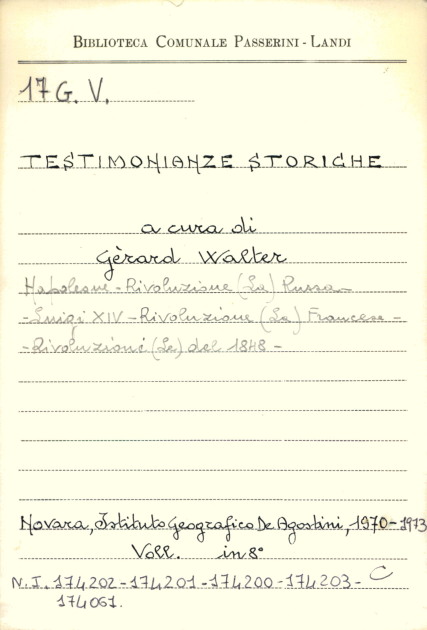 BIBLIOTECA COMUNALE PASSERINI - LANDI
17 G. V.
TESTIMONIANZE STORICHE
a cura di
Gèrard Walter
Napoleone - Rivoluzione (La) Russa -
- Luigi XIV - Rivoluzione (La) Francese -
- Rivoluzioni (Le) del 1848 -
Novara, Istituto Geografico De Agostini, 1970-1973
Voll. in 8°
N.I. 174202 - 174201 - 174200 - 174203 - C
174061.